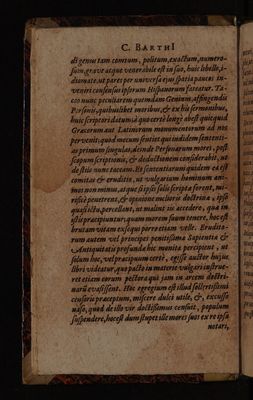 C. BARTHI
di genus tam comtum, politum, exactum, numero-
sum, grave atque venerabile est in suo, huic libello, i-
dioma te, ut pares per universa ejus spatia paucos in-
veniri consensus ipsorum Hispanorum fateatur. Ta-
ceo nunc peculiarem quemdam Genium, affingendis
Personis, quibuslibet moribus, & ex his sermonibus,
huic scriptori datum, à quo certè longè abest quicquid
Græcorum aut Latinorum monumentorum ad nos
pervenit; quod mecum statuet qui indidem sententi-
as primum singulas, deinde Personarum mores, post
scopum scriptionis, & deductionem considerabit, ut
de stilo nunc taceam. Et sententiarum quidem ea est
comitas & eruditio, ut vulgarium hominum ani-
mos non minus, atque si ipsis solis scripta forent, mi-
rificè penetrent, & opinione melioris doctrinæ, ipso
quasi ictu, percellant, ut malint sic accedere, quam in
istis præcipiuntur, quam morem suum tenere, hoc est
brutam vitam exsequi parre etiam velle. Erudito-
rum autem vel principes penitissima Sapientia &
Antiquitatis profunda hic monita percipient, ut
solum hoc, vel præcipuum certè, egisse auctor hujus
libri videatur, quo pacto in materie vulgari instrue-
ret etiam eorum pectora qui jam in arcem doctri-
narū evasissent. Hoc egregium est illud sollertissimi
censoris præceptum, miscere dulci utile, &, excusso
naso, quod de illo vir doctissimus censuit, populum
suspendere, hoc est dum stupet ille mores suos ex re ipsa
notari,